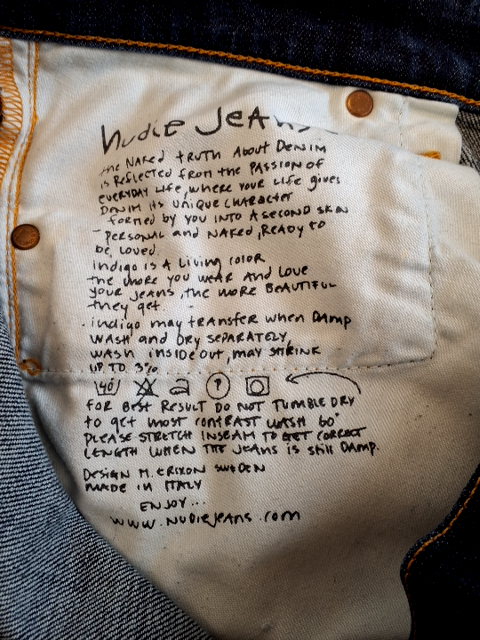 Nudie Jeans
the Naked truth About Denim
is Reflected from the Passion of
everyday life, where your life gives
Denim its unique character
- formed by you into a second skin
- personal and naked, ready to
be loved.
indigo is A living color
the more you wear and love
your jeans, the more beautiful
they get.
. indigo may transfer when damp
wash and dry separately,
wash inside out, may shrink
up to 3%
40 P
for best result do not tumble dry
to get most contrast wash 60°
please stretch inseam to get correct
length when the jeans is still damp.
Design M. Erixon Sweden
made in Italy
Enjoy...
www.nudiejeans.com